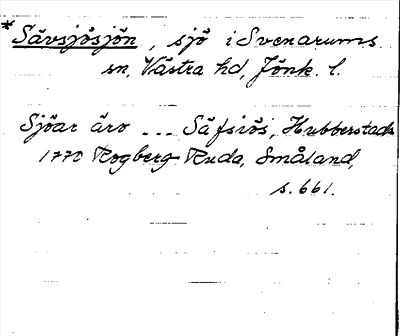 *Sävsjösjön, sjö i Svenarums
sn, Västra hd, Jönk. l.
Sjöar äro --- Säfsiös, Hubberstads
1770 Rogberg-Ruda, Småland,
s. 661.